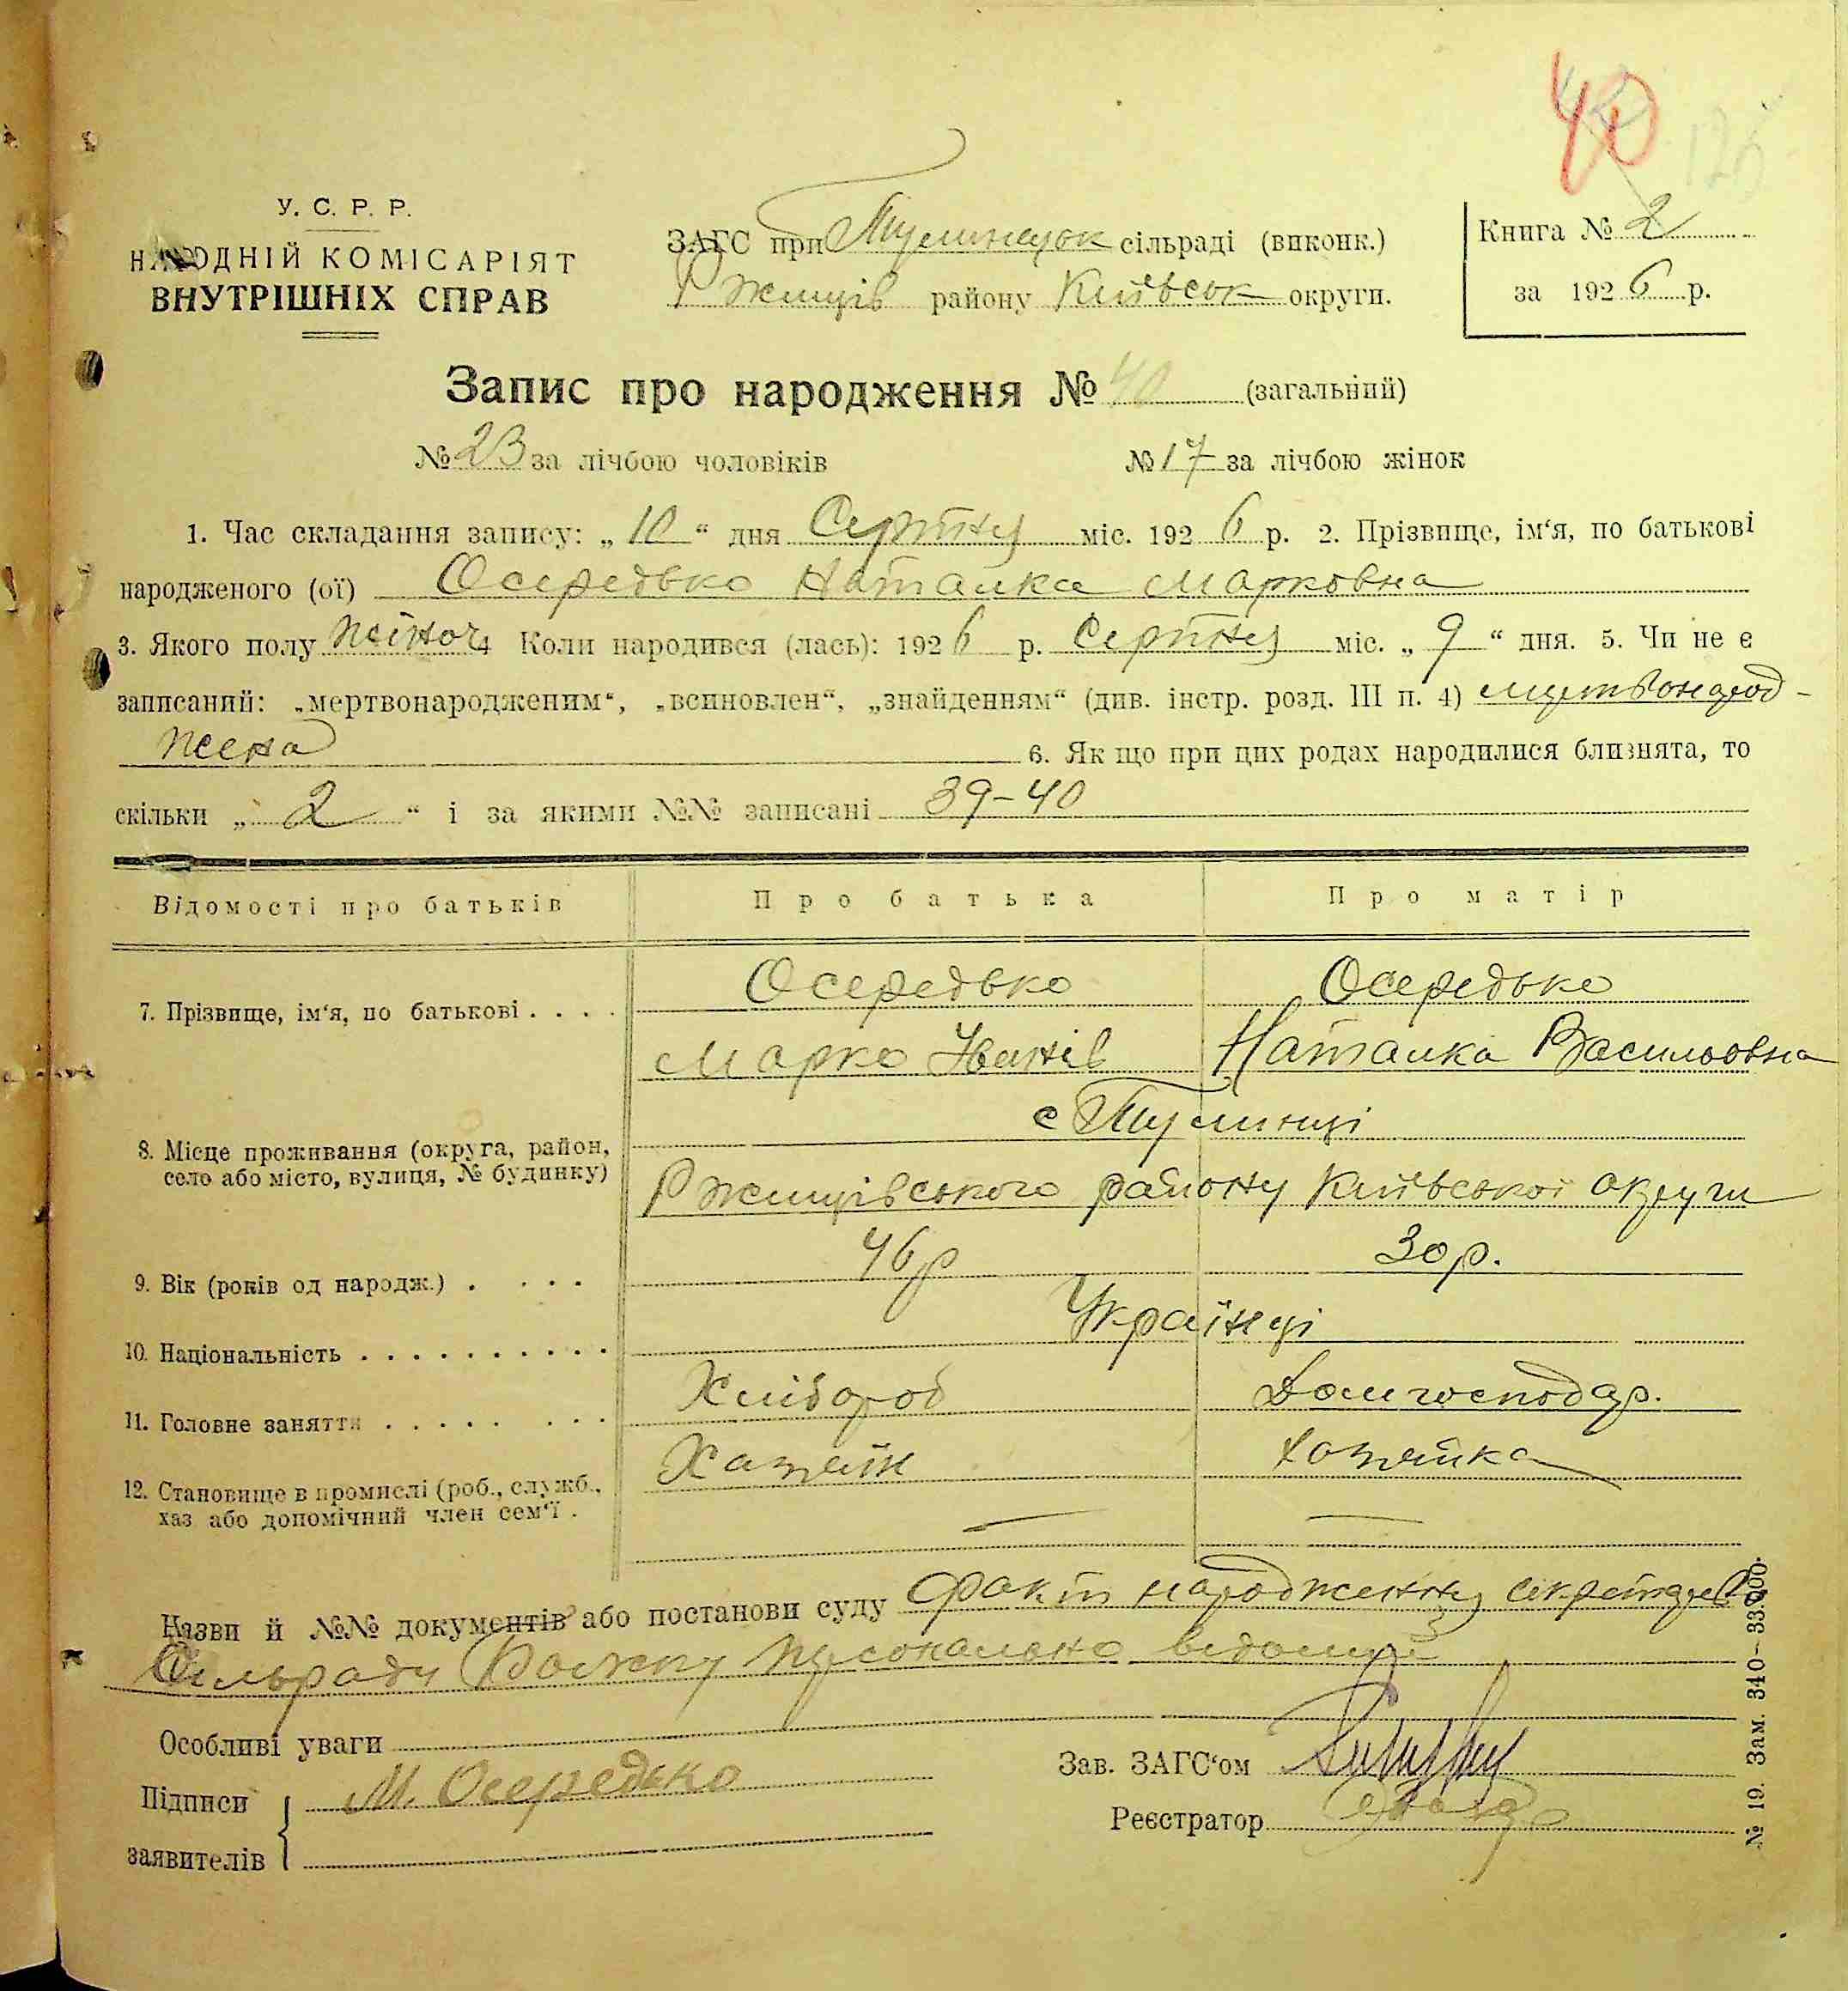 40
У. С. Р. Р.
НАРОДНІЙ КОМІСАРІЯТ
ВНУТРІШНІХ СПРАВ
ЗАГС при Тулинецьк сільраді (виконк.)
Ржищів району Київськ округи.
Книга № 2
за 1926 р.
Запис про народження № 40 (загальний)
№ 23 за лічбою чоловіків № 17 за лічбою жінок
1. Час складання запису: „ 10 “ дня Серпня міс. 1926 р. 2. Прізвище, ім‘я, по батькові
народженого (ої) Осередько Наталка Марковна
3. Якого полу жіноч 4 Коли народився (лась): 1926 р. Серпня міс. „ 9 “ дня. 5. Чи не є
записаний: „мертвонародженим“, „всиновлен“, „знайденням“ (див. інстр. розд. III п. 4) мертвонарод-
жена 6. Як що при цих родах народилися близнята, то
скільки „ 2 “ і за якими №№ записані 39-40
Відомості про батьків Про батька Про матір
7. Прізвище, ім‘я, по батькові . . . . Осередько Осередько
Марко Іванів Наталка Васильовна
8. Місце проживання (округа, район, село або місто, вулиця, № будинку) с Тулинці
Ржищівського району Київської округи
9. Вік (років од народж.) . . . . 46 р 30 р.
10. Національність . . . . . . . . . . Українці
11. Головне заняття . . . . . . . . Хлібороб Дом господар.
12. Становище в промислі (роб., служб., хаз або допомічний член сем‘ї . Хазяїн Хозяйка
Назви й №№ документів або постанови суду Факт народження секретарев
Сільради персонально відомий
Особливі уваги
Підписи заявителів М. Осередько
Зав. ЗАГС‘ом
Реєстратор
№ 19. Зам. 340—33.000.